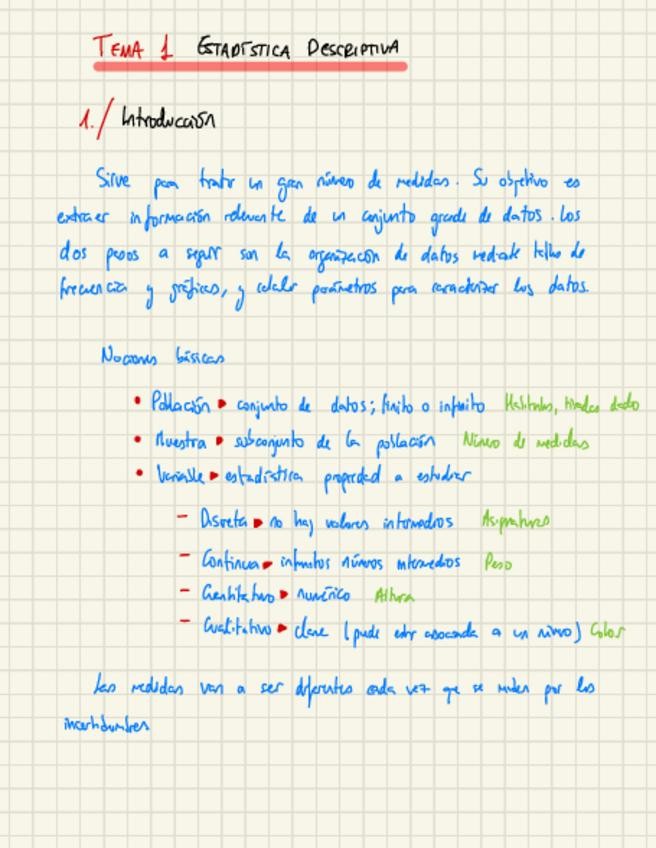 TEMA 1 ESTADÍSTICA DESCRIPTIVA
1./ Introducción
Sirve para tratar un gran número de medidas. Su objetivo es
extraer información relevante de un conjunto grande de datos. Los
dos pasos a seguir son la organización de datos mediante tablas de
frecuencia y gráficos, y calcular parámetros para caracterizar los datos.
Nociones básicas
• Población ▸ conjunto de datos; finito o infinito Habitantes, tiradas dado
• Muestra ▸ subconjunto de la población Número de medidas
• Variable ▸ estadística propiedad a estudiar
- Discreta ▸ no hay valores intermedios Asignaturas
- Continua ▸ infinitos números intermedios Peso
- Cuantitativo ▸ numérico Altura
- Cualitativo ▸ clase (puede estar asociada a un número) Color
Las medidas van a ser diferentes cada vez que se miden por las
incertidumbres